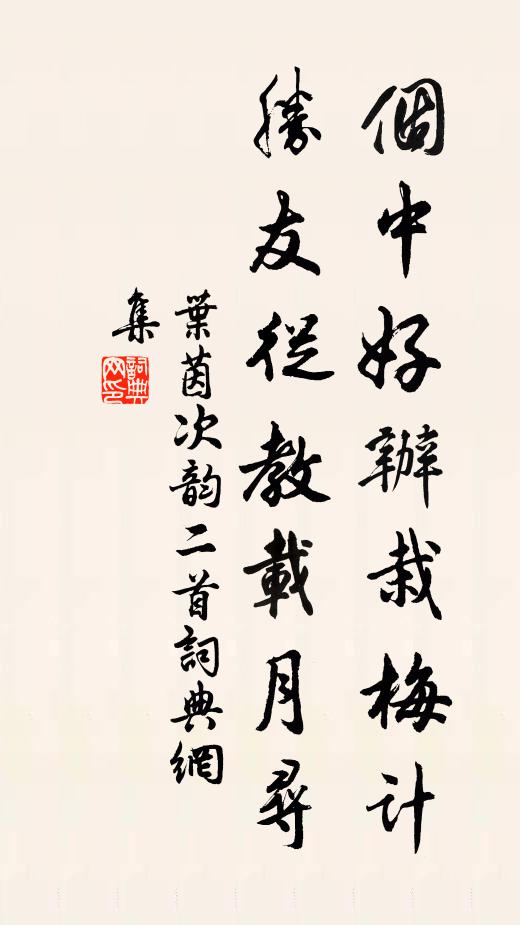 個中好辦栽梅計
勝友從教載月尋
葉茵次韵二首詞典網
集
詞典
网印